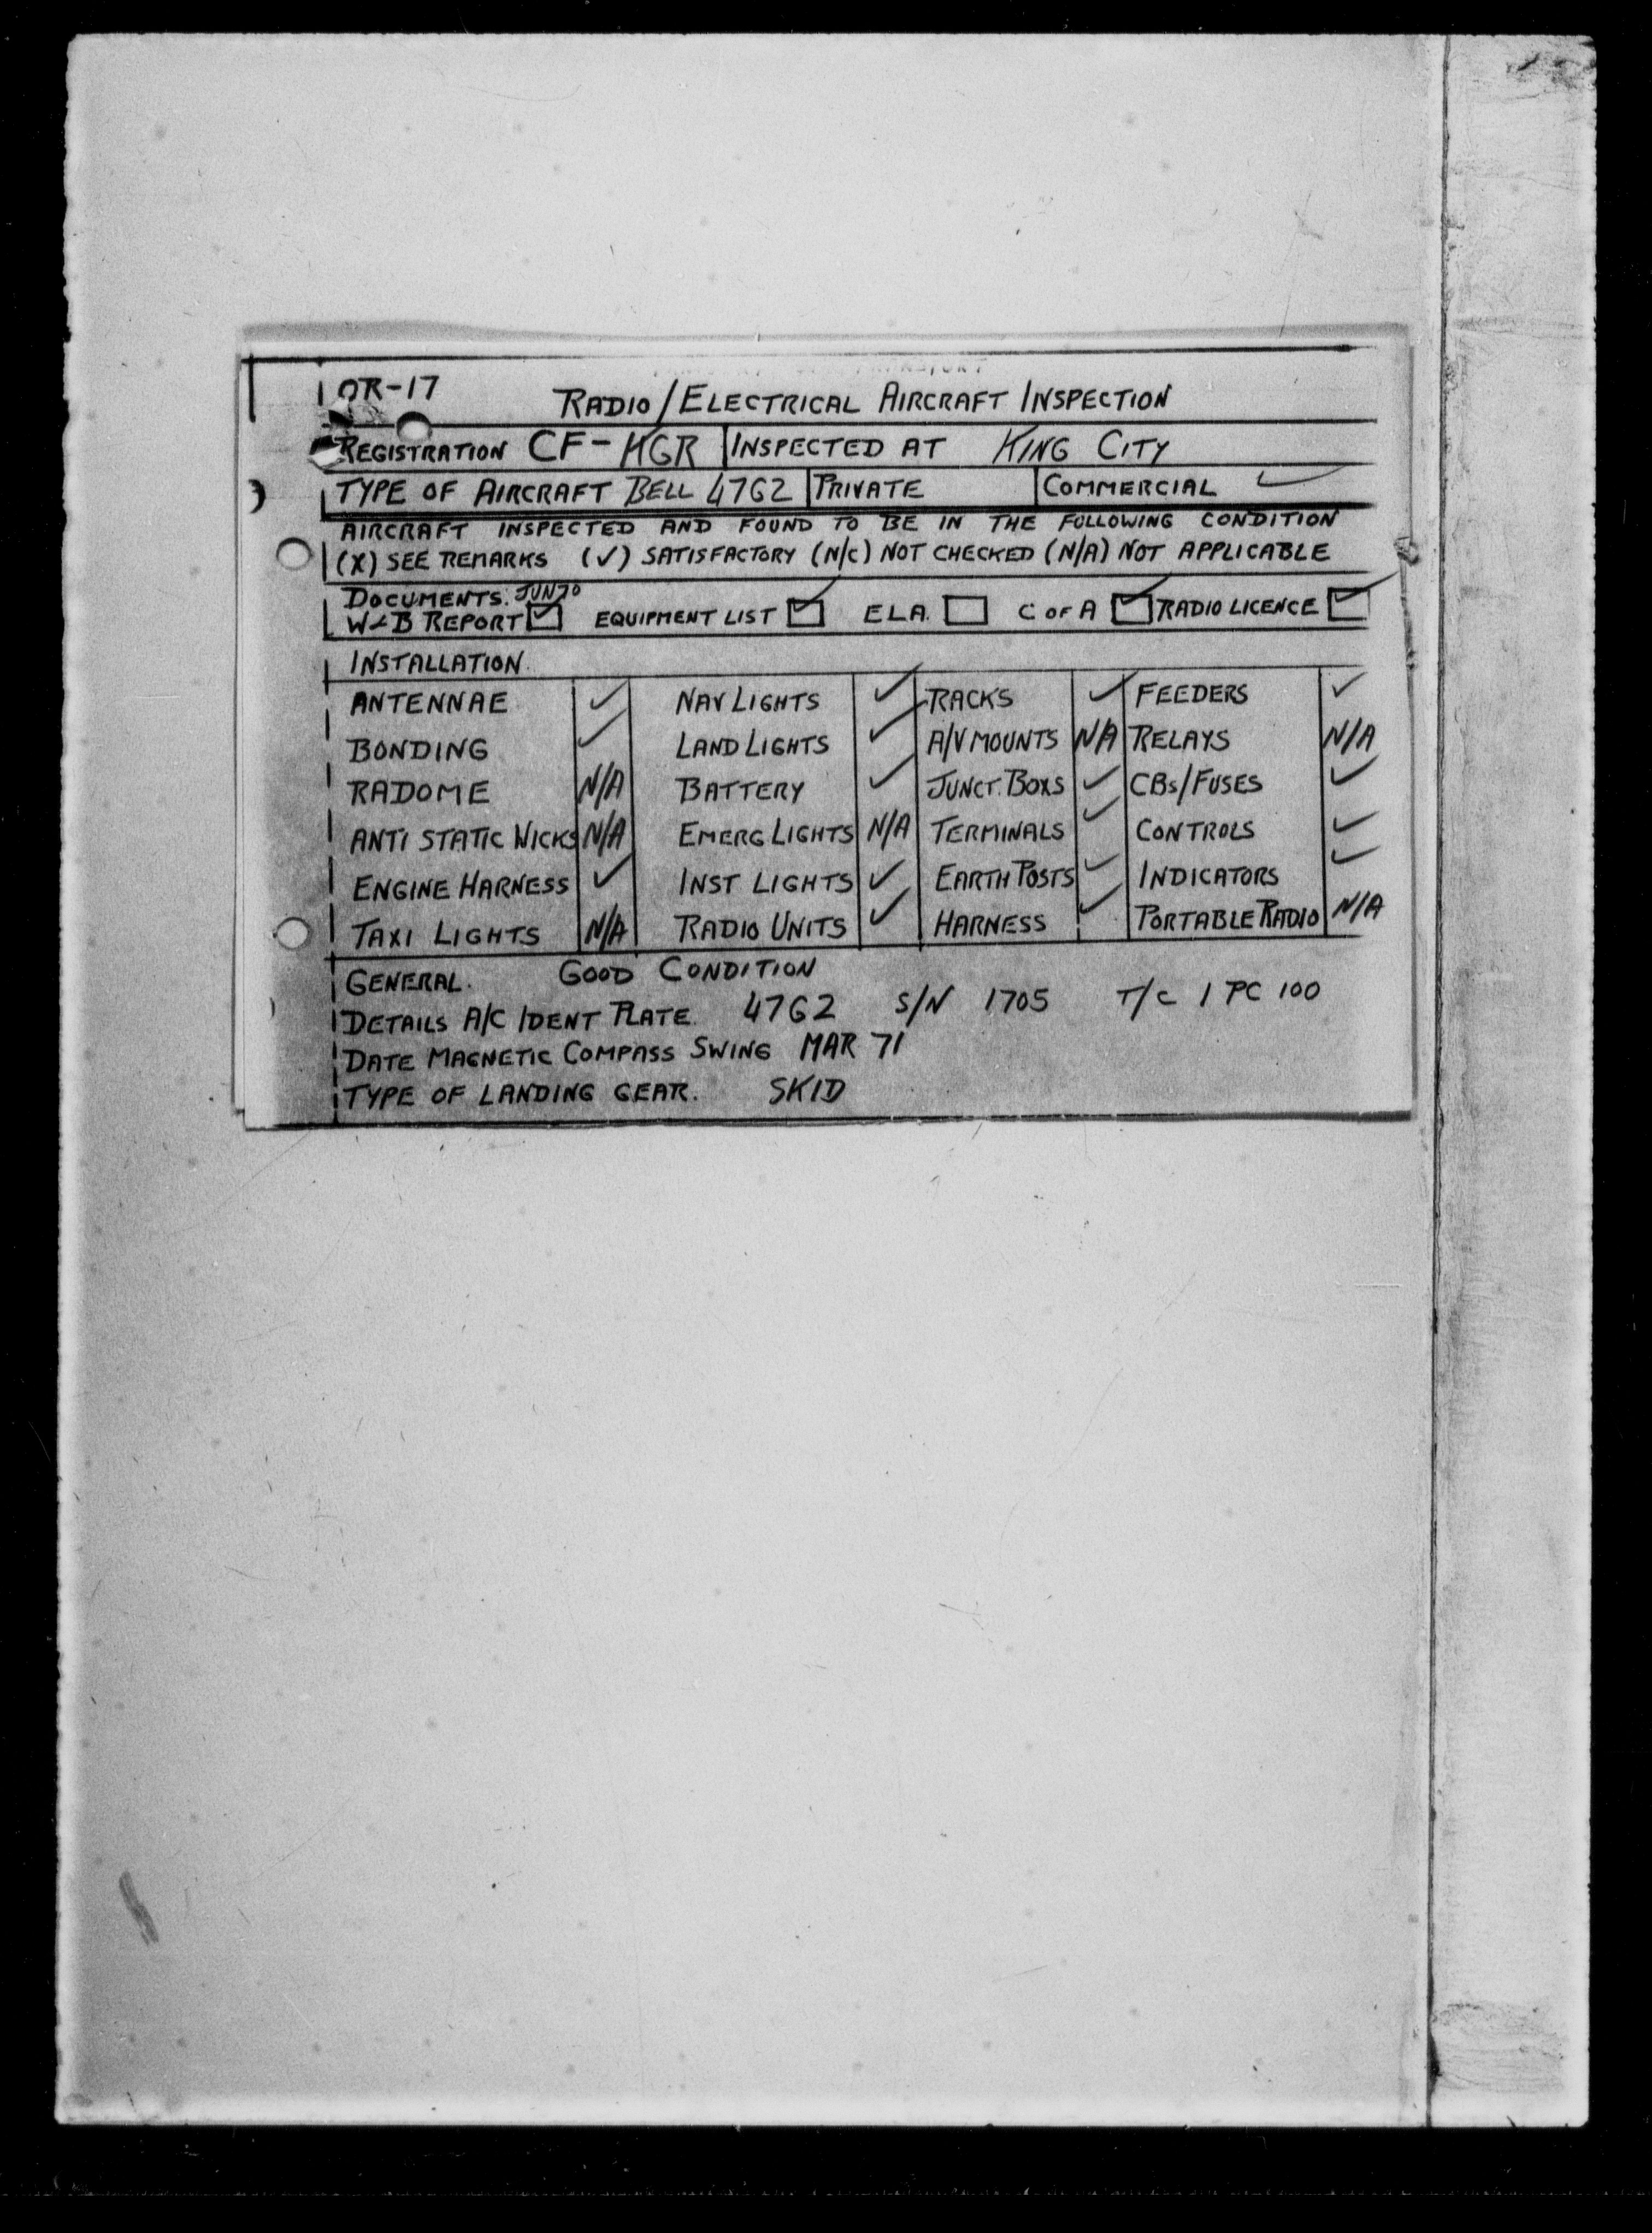 OR-17
RADIO/ELECTRICAL AIRCRAFT INSPECTION
REGISTRATION CF-HGR INSPECTED AT KING CITY
TYPE OF AIRCRAFT BELL 47G2 PRIVATE COMMERCIAL ✓
AIRCRAFT INSPECTED AND FOUND TO BE IN THE FOLLOWING CONDITION
(X) SEE REMARKS (✓) SATISFACTORY (N/C) NOT CHECKED (N/A) NOT APPLICABLE
DOCUMENTS. JUN 70
W&B REPORT ☑ EQUIPMENT LIST ☑ E.L.A. ☐ C OF A ☑ RADIO LICENCE ☑
INSTALLATION.
ANTENNAE ✓ NAV LIGHTS ✓ RACKS ✓ FEEDERS ✓
BONDING ✓ LAND LIGHTS ✓ A/V MOUNTS N/A RELAYS N/A
RADOME N/A BATTERY ✓ JUNCT. BOXS ✓ CBs/FUSES ✓
ANTI STATIC WICKS N/A EMERG LIGHTS N/A TERMINALS ✓ CONTROLS ✓
ENGINE HARNESS ✓ INST LIGHTS ✓ EARTH POSTS ✓ INDICATORS ✓
TAXI LIGHTS N/A RADIO UNITS ✓ HARNESS ✓ PORTABLE RADIO N/A
GENERAL. GOOD CONDITION
DETAILS A/C IDENT PLATE. 47G2 S/N 1705 T/C 1 PC 100
DATE MAGNETIC COMPASS SWING MAR 71
TYPE OF LANDING GEAR. SKID